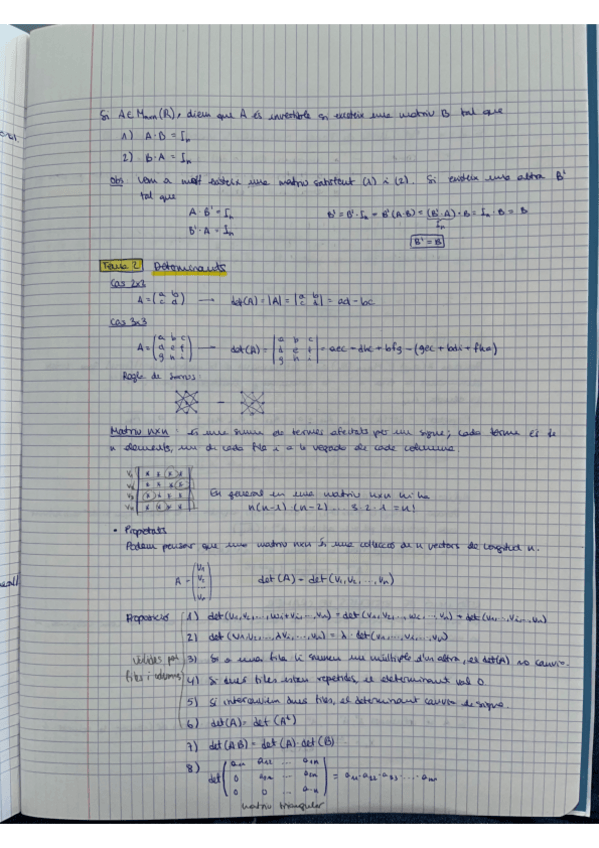 Si A∈Mnxn(R), diem que A és invertible si existeix una matriu B tal que
1) A·B = In
2) B·A = In
Obs: Com a molt existeix una matriu satisfent (1) i (2). Si existeix una altra B'
tal que
A·B' = In    B' = B'·In = B'(A·B) = (B'·A)·B = In·B = B
B'·A = In    In
B' = B
Tema 2 Determinants
Cas 2x3
A = (a b / c d) → det(A) = |A| = |a b / c d| = ad - bc
Cas 3x3
A = (a b c / d e f / g h i) → det(A) = |a b c / d e f / g h i| =
Regla de Sarrus:
Matriu nxn: És una suma de termes afectats per un signe; cada terme és de
n elements, un de cada fila i a la vegada de cada columna.
En general en una matriu nxn hi ha
n(n-1)(n-2)... 3·2·1 = n!
• Propietats
Podem pensar que una matriu nxn és una col·lecció de n vectors de longitud n.
A = (v1 / v2 / ... / vn)    det(A) = det(v1, v2, ..., vn)
Proposició
vàlides per
files i columnes
3) Si a una fila li sumem un múltiple d'un altra, el det(A) no canvia.
4) Si dues files estan repetides el determinant val 0.
5) Si intercanviem dues files, el determinant canvia de signe.
6) det(A) = det(A^t)
7) det(AB) = det(A)·det(B)
8) det
matriu triangular